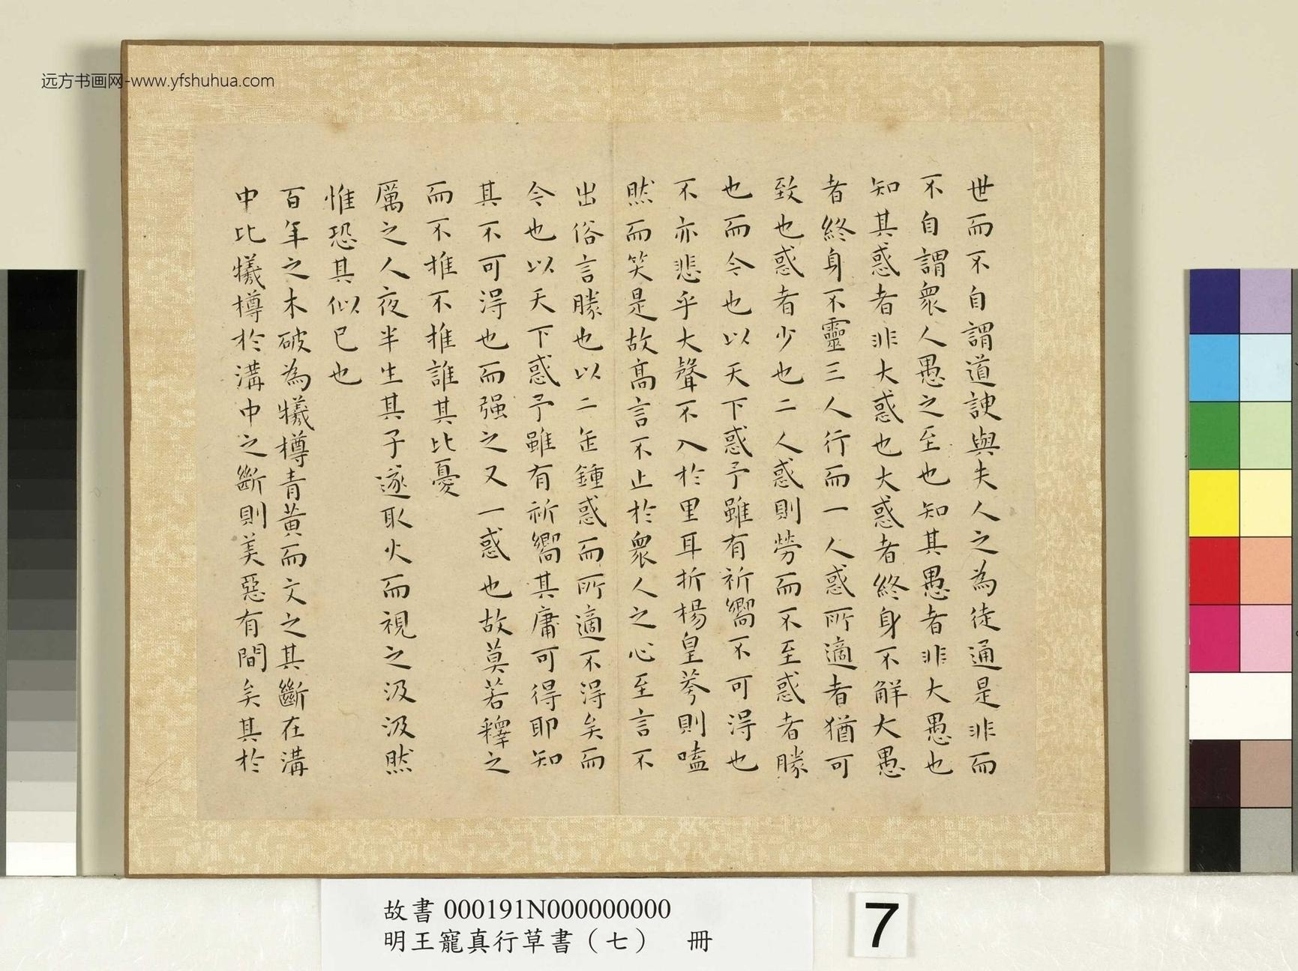 远方书画网-www.yfshuhua.com
世而不自謂道諛與夫人之為徒通是非而
不自謂衆人愚之至也知其愚者非大愚也
知其惑者非大惑也大惑者終身不解大愚
者終身不靈三人行而一人惑所適者猶可
致也惑者少也二人惑則勞而不至惑者勝
也而今也以天下惑予雖有祈嚮不可得也
不亦悲乎大聲不入於里耳折楊皇荂則嗑
然而笑是故高言不止於衆人之心至言不
出俗言勝也以二缶鍾惑而所適不得矣而
今也以天下惑予雖有祈嚮其庸可得耶知
其不可得也而强之又一惑也故莫若釋之
而不推不推誰其比憂
厲之人夜半生其子遂取火而視之汲汲然
惟恐其似已也
百年之木破為犧樽青黃而文之其斷在溝
中比犧樽於溝中之斷則美惡有間矣其於
故書000191N000000000
明王寵真行草書（七） 冊
7